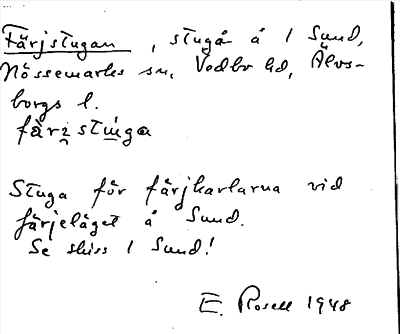 Färjstugan, stuga å 1 Sund,
Nössemarks sn, Vedbo hd, Älvs-
borgs l.
färi̯stu̇ga
Stuga för färjkarlarna vid
färjeläget å Sund.
Se skiss 1 Sund!
E. Rosell 1948